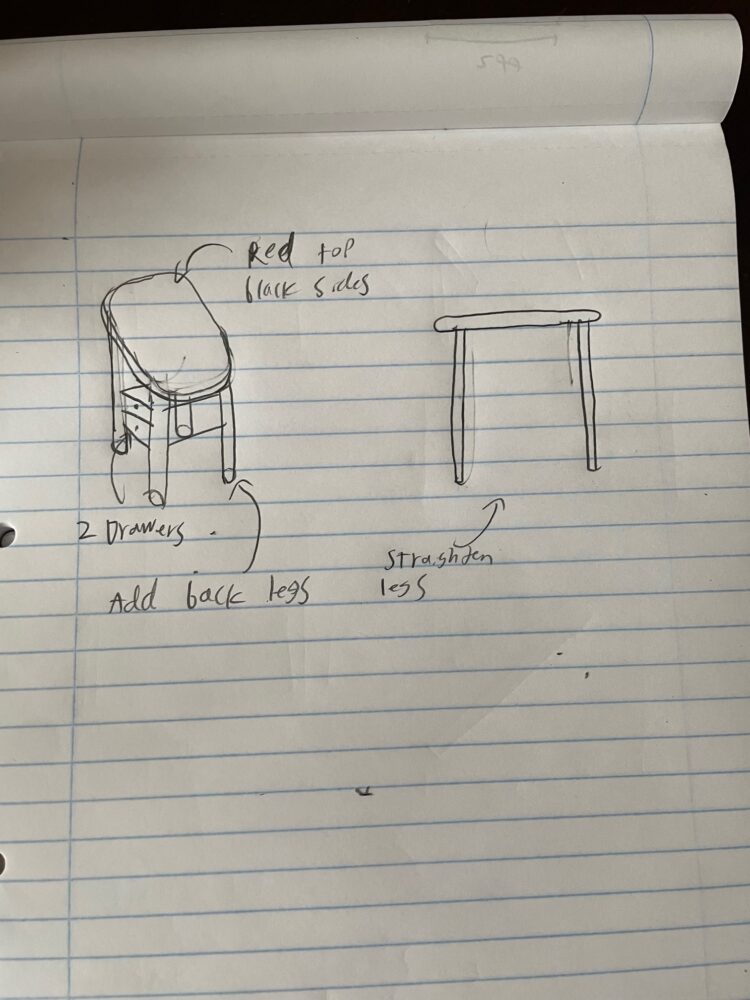 Red top
black sides
2 Drawers
Add back legs
Strashten
legs